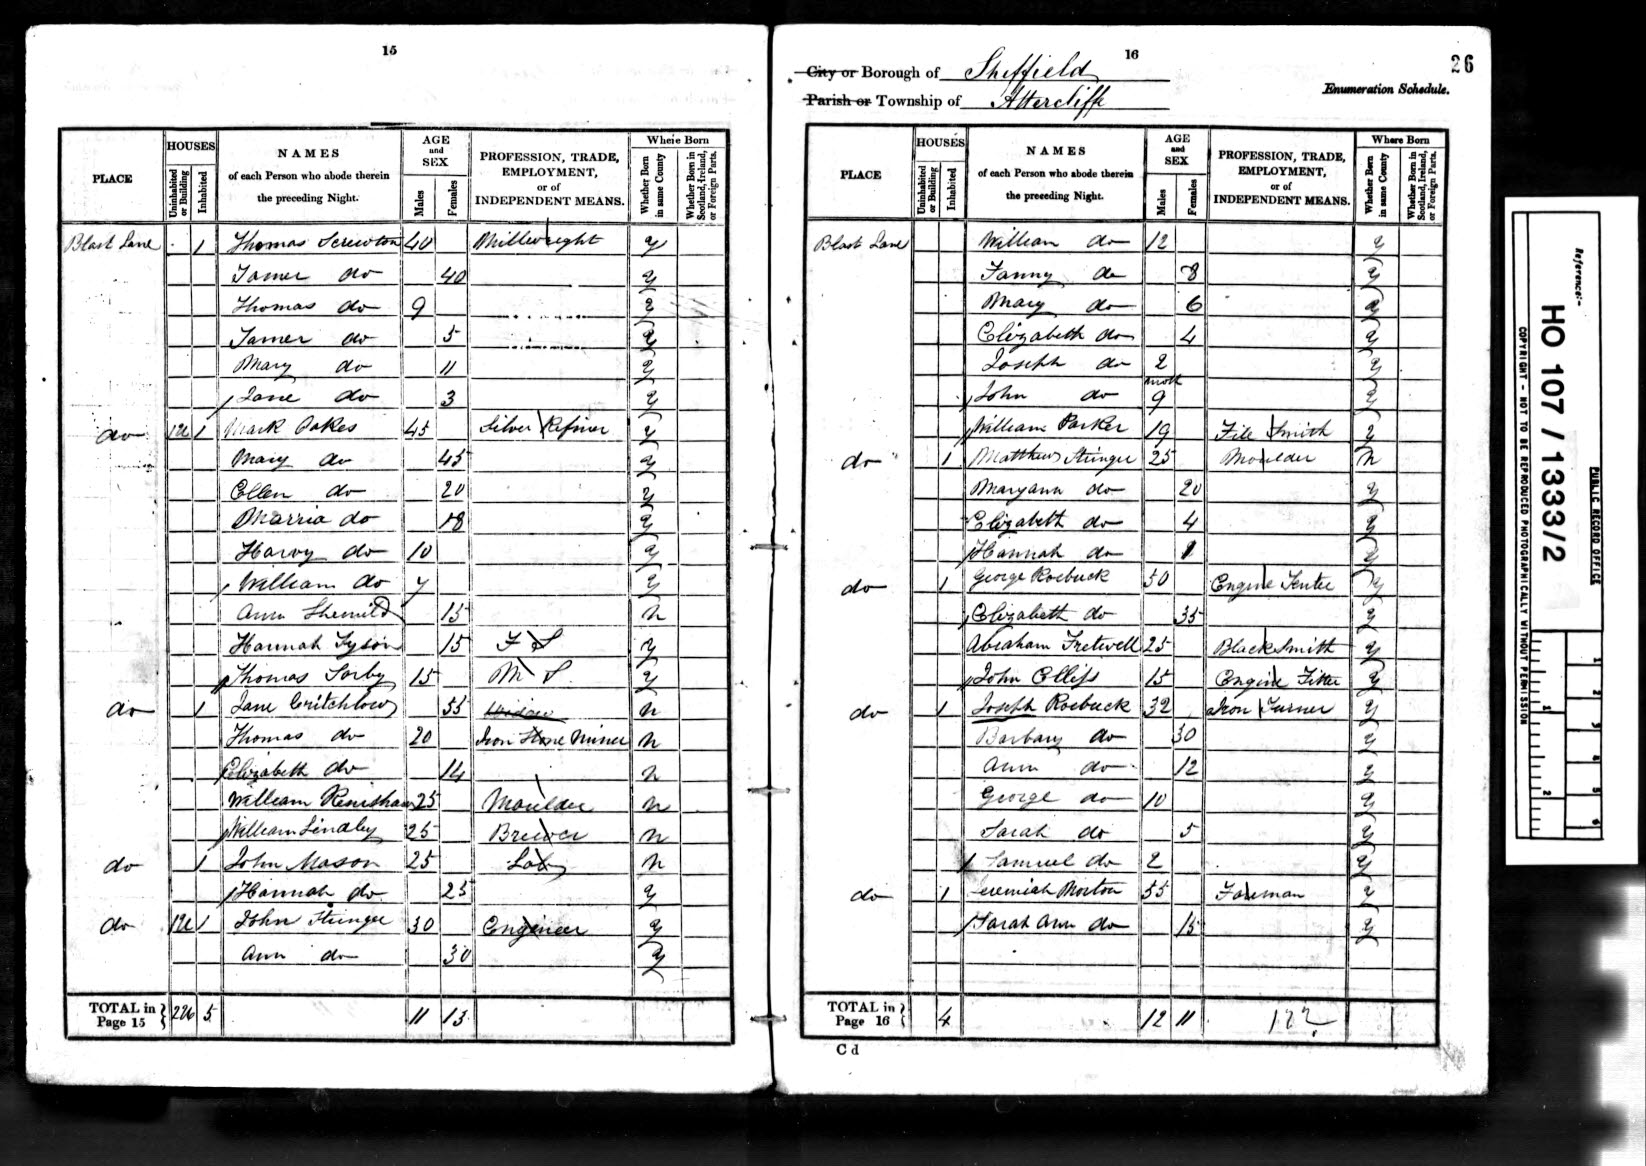 15
PLACE
HOUSES
Uninhabited or Building
Inhabited
NAMES
of each Person who abode therein
the preceding Night.
AGE
and
SEX
Males
Females
PROFESSION, TRADE,
EMPLOYMENT,
or of
INDEPENDENT MEANS.
Where Born
Whether Born in same County
Whether Born in Scotland, Ireland, or Foreign Parts.
Blast Lane 1 Thomas Screwton 40 Millwright y
Tamer do 40 y
Thomas do 9 y
Tamer do 5 y
Mary do 11 y
Jane do 3 y
do 1U 1 Mark Oakes 45 Silver Refiner y
Mary do 45 y
Ellen do 20 y
Marria do 18 y
Harvy do 10 y
William do 7 y
Ann 15 n
Hannah Tyson 15 F S y
Thomas Sorby 15 M S y
do 1 Jane Critchlow 55 Widow n
Thomas do 20 Iron Stone Miner n
Elizabeth do 14 n
William Renishaw 25 Moulder n
William Lindley 25 Brewer n
do 1 John Mason 25 Lab n
Hannah do 25 y
do 1U 1 John Stringer 30 Engineer y
Ann do 30 y
TOTAL in Page 15 2U 5 11 13
16
City or Borough of Sheffield
Parish or Township of Attercliff
Enumeration Schedule.
26
PLACE
HOUSES
Uninhabited or Building
Inhabited
NAMES
of each Person who abode therein
the preceding Night.
AGE
and
SEX
Males
Females
PROFESSION, TRADE,
EMPLOYMENT,
or of
INDEPENDENT MEANS.
Where Born
Whether Born in same County
Whether Born in Scotland, Ireland, or Foreign Parts.
Blast Lane William do 12 y
Fanny do 8 y
Mary do 6 y
Elizabeth do 4 y
Joseph do 2 y
John do 9 month y
William Parker 19 File Smith y
do 1 Matthew Stringer 25 Moulder n
Maryann do 20 y
Elizabeth do 4 y
Hannah do 1 y
do 1 George Roebuck 50 Engine Tenter y
Elizabeth do 35 y
Abraham Fretwell 25 Black Smith y
John Ellis 15 Engine Fitter y
do 1 Joseph Roebuck 32 Iron Turner y
Barbary do 30 y
Ann do 12 y
George do 10 y
Sarah do 5 y
Samuel do 2 y
do 1 Jeremiah Morton 55 Foreman y
Sarah Ann do 15 y
TOTAL in Page 16 4 12 11
C d
Reference:-
HO 107 / 1333/2
PUBLIC RECORD OFFICE
COPYRIGHT - NOT TO BE REPRODUCED PHOTOGRAPHICALLY WITHOUT PERMISSION
1
2
3
4
5
6
1
2